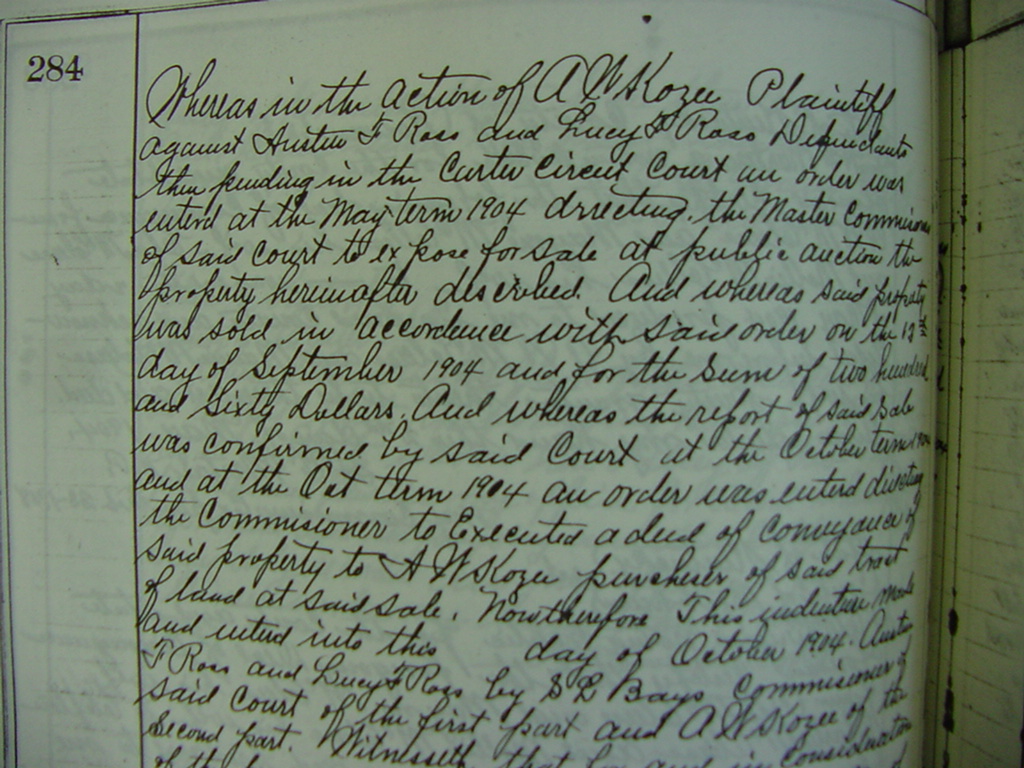 284
Whereas in the action of A W Kozee Plaintiff
against Austin F Ross and Lucy F Ross Defendants
then pending in the Carter Circuit Court an order was
enterd at the May term 1904 drrecting the Master Commission
of said court to expose for sale at public auction the
property herinafter described. And whereas said property
was sold in accordence with said order on the 12th
day of September 1904 and for the sum of two hundred
and Sixty Dollars. And whereas the report of said sale
was confirmed by said Court at the October term 1904
and at the Oct term 1904 an order was enterd directing
the Commisioner to Executed a deed of conveyance of
said property to A W Kozee purcheser of said tract
of land at said sale. Now therefore This indenture made
and enterd into this day of October 1904. Austin
F Ross and Lucy F Ross by S L Bays Commisioner of
said Court of the first part and A W Kozee of the
Second part. Witnesseth that for and in consideration
of the